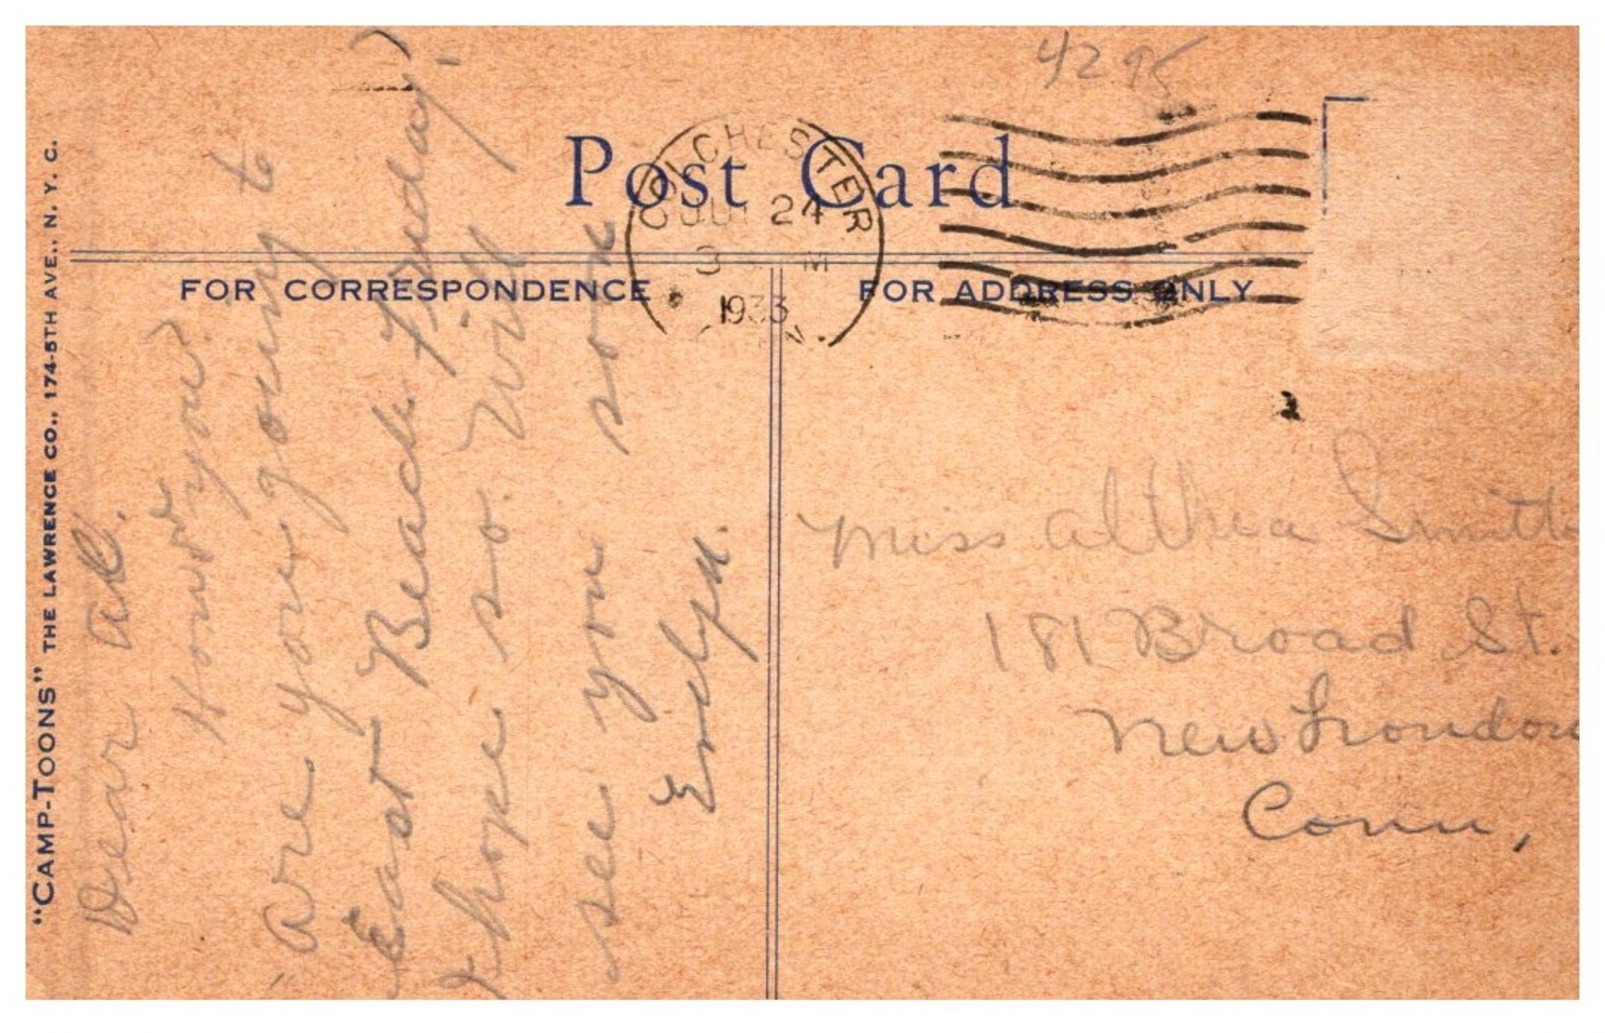 4295
Post Card
COLCHESTER
JUL 24
3 M
1933
FOR CORRESPONDENCE
FOR ADDRESS ONLY
"CAMP-TOONS" THE LAWRENCE CO., 174-5TH AVE., N. Y. C.
Dear Al.
How's you?
are you going to
East Beach Friday?
I hope so. Will
see you soon
Evelyn.
Miss Althea Smith
181 Broad St.
New London
Conn,